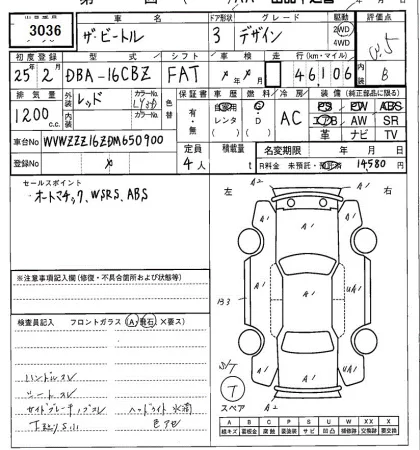 3036
車名 ドア形状 グレード 駆動 評価点
ザ・ビートル 3 デザイン 2WD 4WD 4.5
初度登録 型式 シフト 車検 走行(km・マイル) 内装
25年2月 DBA-16CBZ FAT 年 月 46,106 B
排気量 外装 カラーNo. 色替 保証書 車歴 燃 冷房 装備(純正部品に限る)
1200 c.c. レッド LY3D 有・無 自家用 レンタ G・D AC PS PW ABS
内装 カラーNo. エアB AW SR
車台No WVWZZZ16ZDM650900 革 ナビ TV
定員 積載量 名変期限 年 月 日
登録No 4人 t R料金 未預託・預託済 14580円
セールスポイント
オートマチック、WSRS、ABS
左 右
A2
A1 A1
A1
A1 A1 UA1
B3
A1
A1 UA1
A1
T
スペア A2
※注意事項記入欄(修復・不具合箇所および状態等)
検査員記入 フロントガラス (A・飛石・×要ス)
ハンドルスレ
シートスレ
サイドブレーキブーツスレ ヘッドライト水滴
色アセ
A B C P S U W X XX
線キズ 板金 腐食 要塗装 サビ 凹凸 補修跡 交換跡 要交換